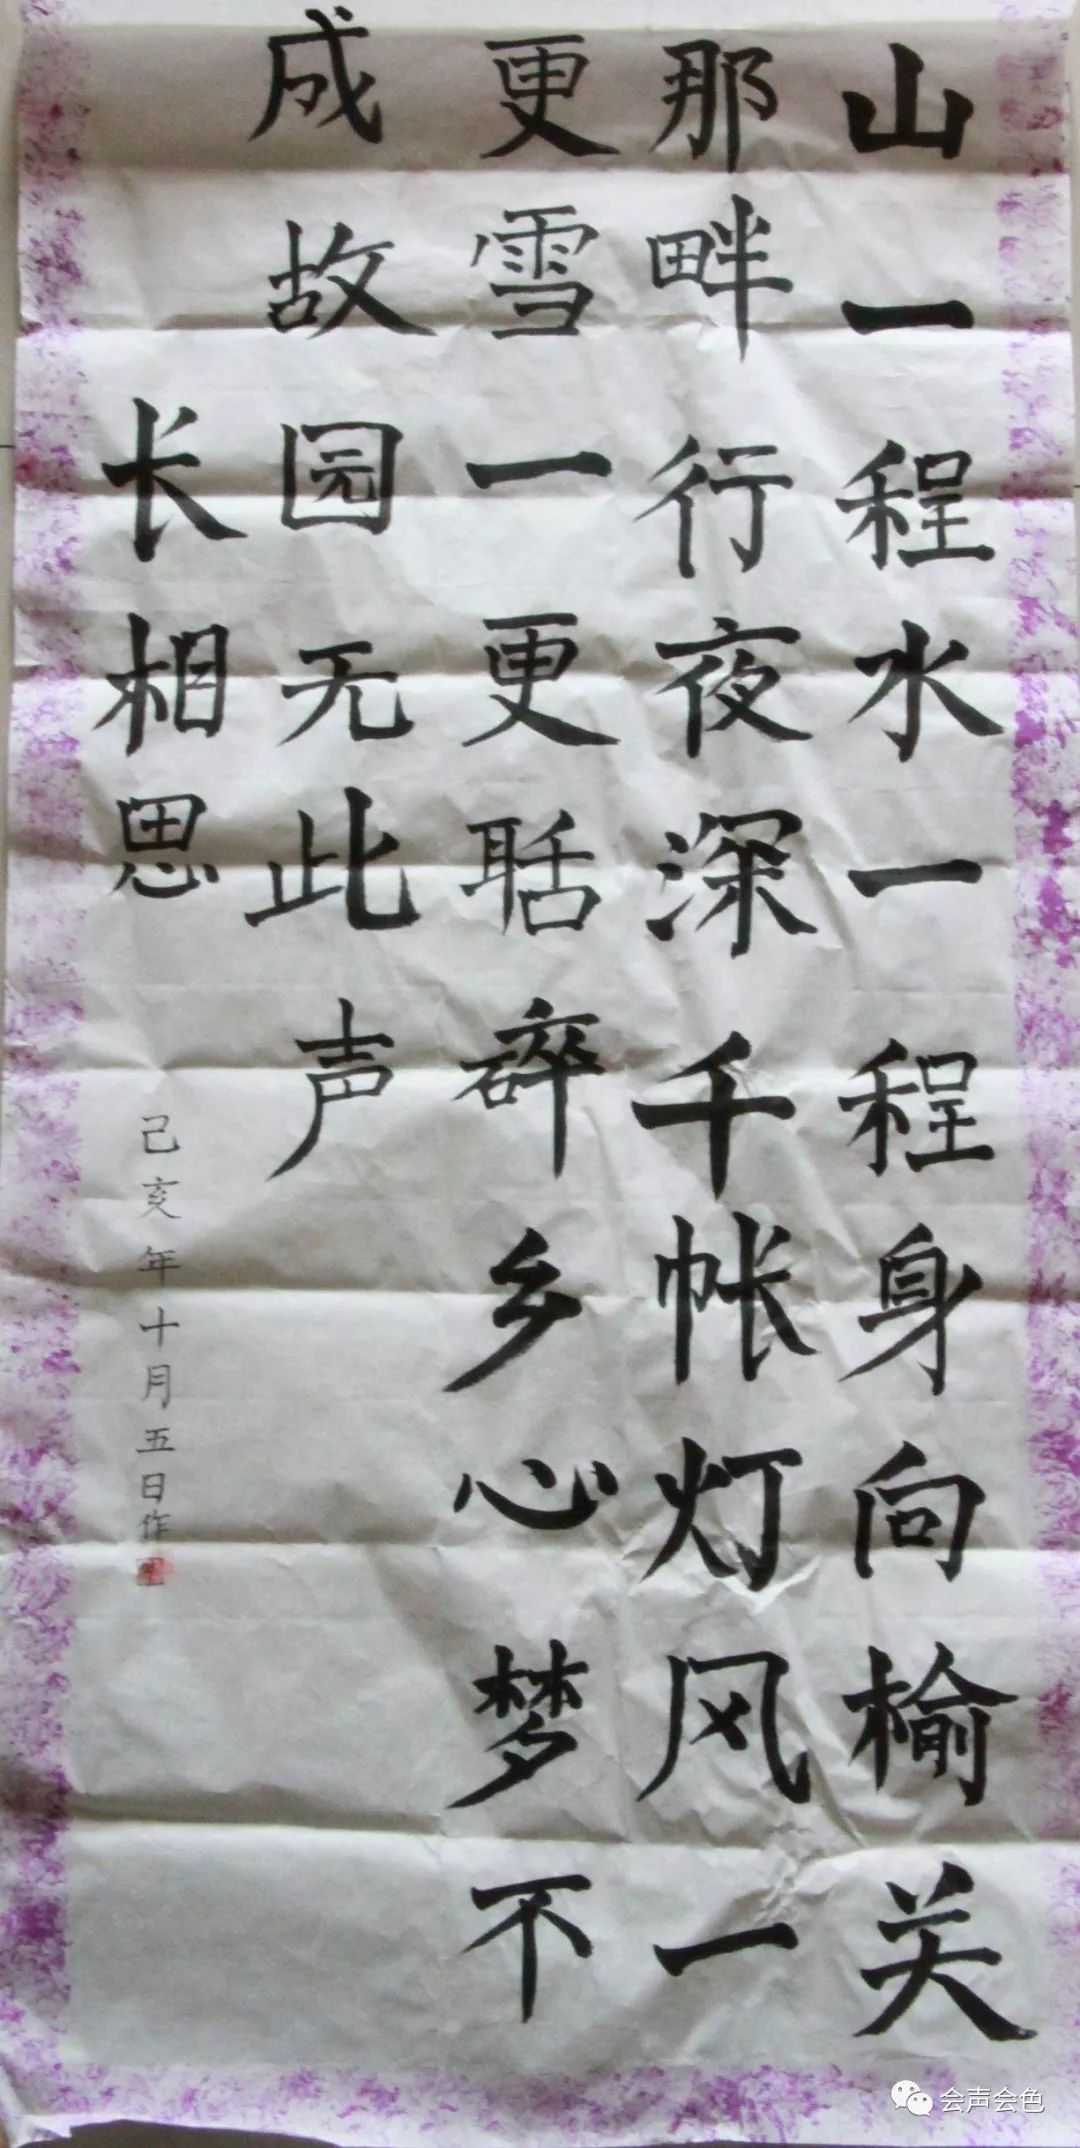 山一程水一程身向榆关
那畔行夜深千帐灯风一
更雪一更聒碎乡心梦不
成故园无此声
长相思
己亥年十月五日作
会声会色